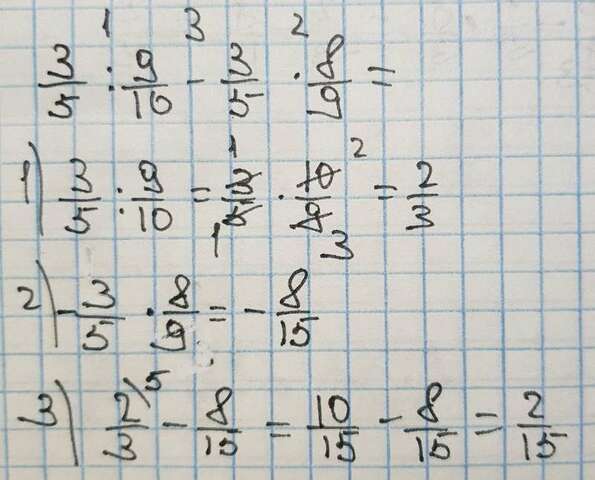 3/5 : 9/10 - 3/5 · 8/9 =
1) 3/5 : 9/10 = 3/5 · 10/9 = 2/3
2) -3/5 · 8/9 = - 8/15
3) 2/3 - 8/15 = 10/15 - 8/15 = 2/15